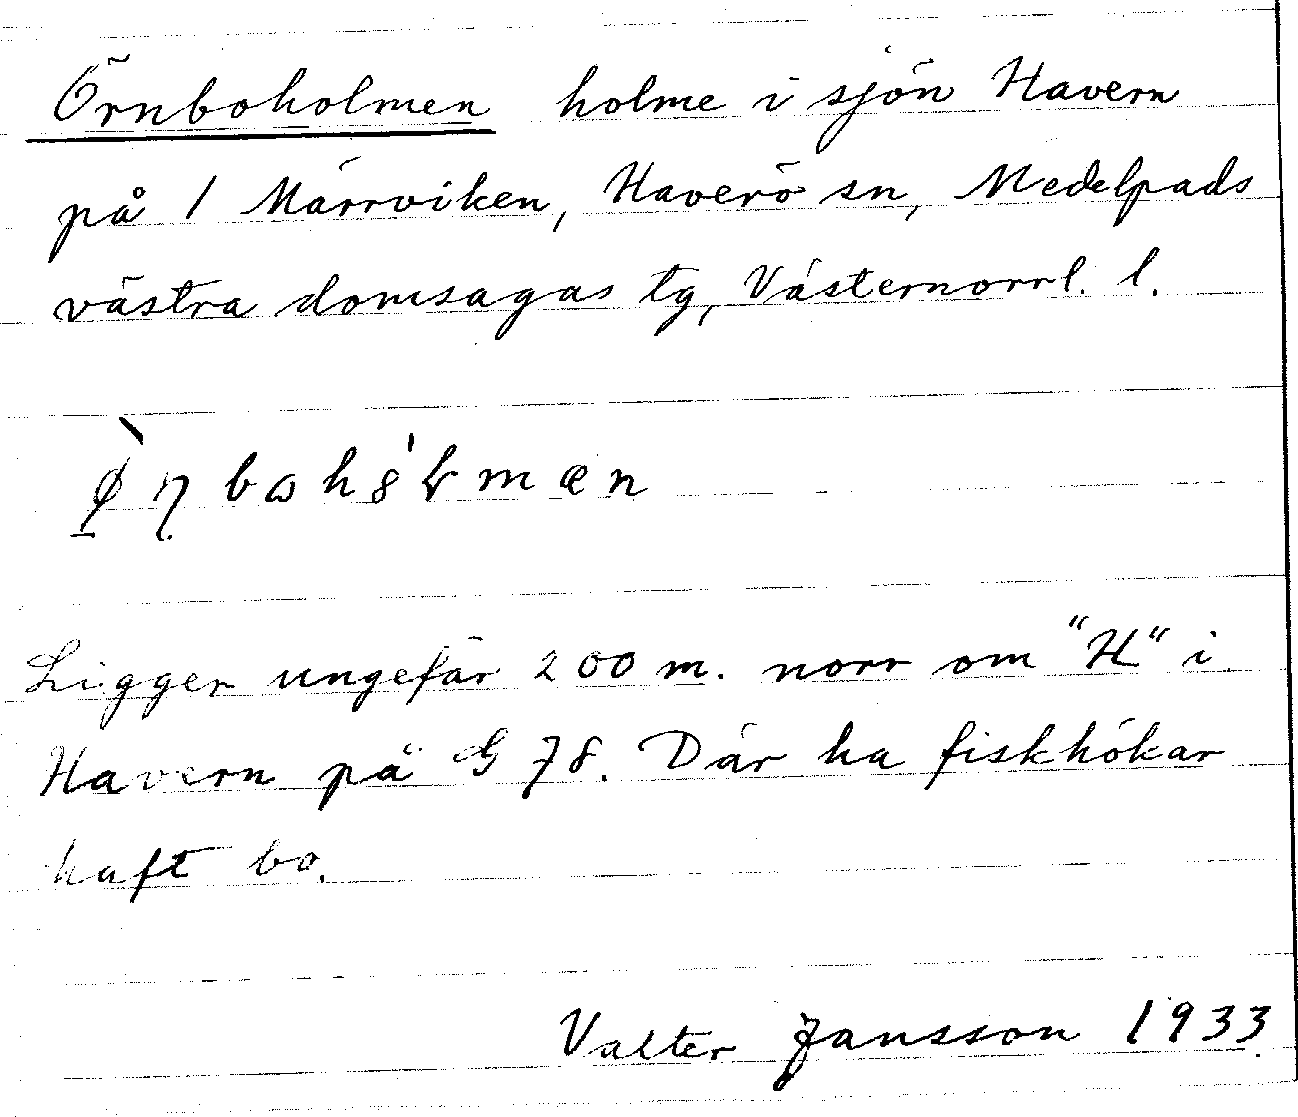 Örnboholmen holme i sjön Havern
på 1 Märrviken, Haverö sn, Medelpads
västra domsagas tg, Västernorrl. l.
Ligger ungefär 200 m. norr om "H" i
Havern på G 78. Där ha fiskhökar
haft bo.
Valter Jansson 1933